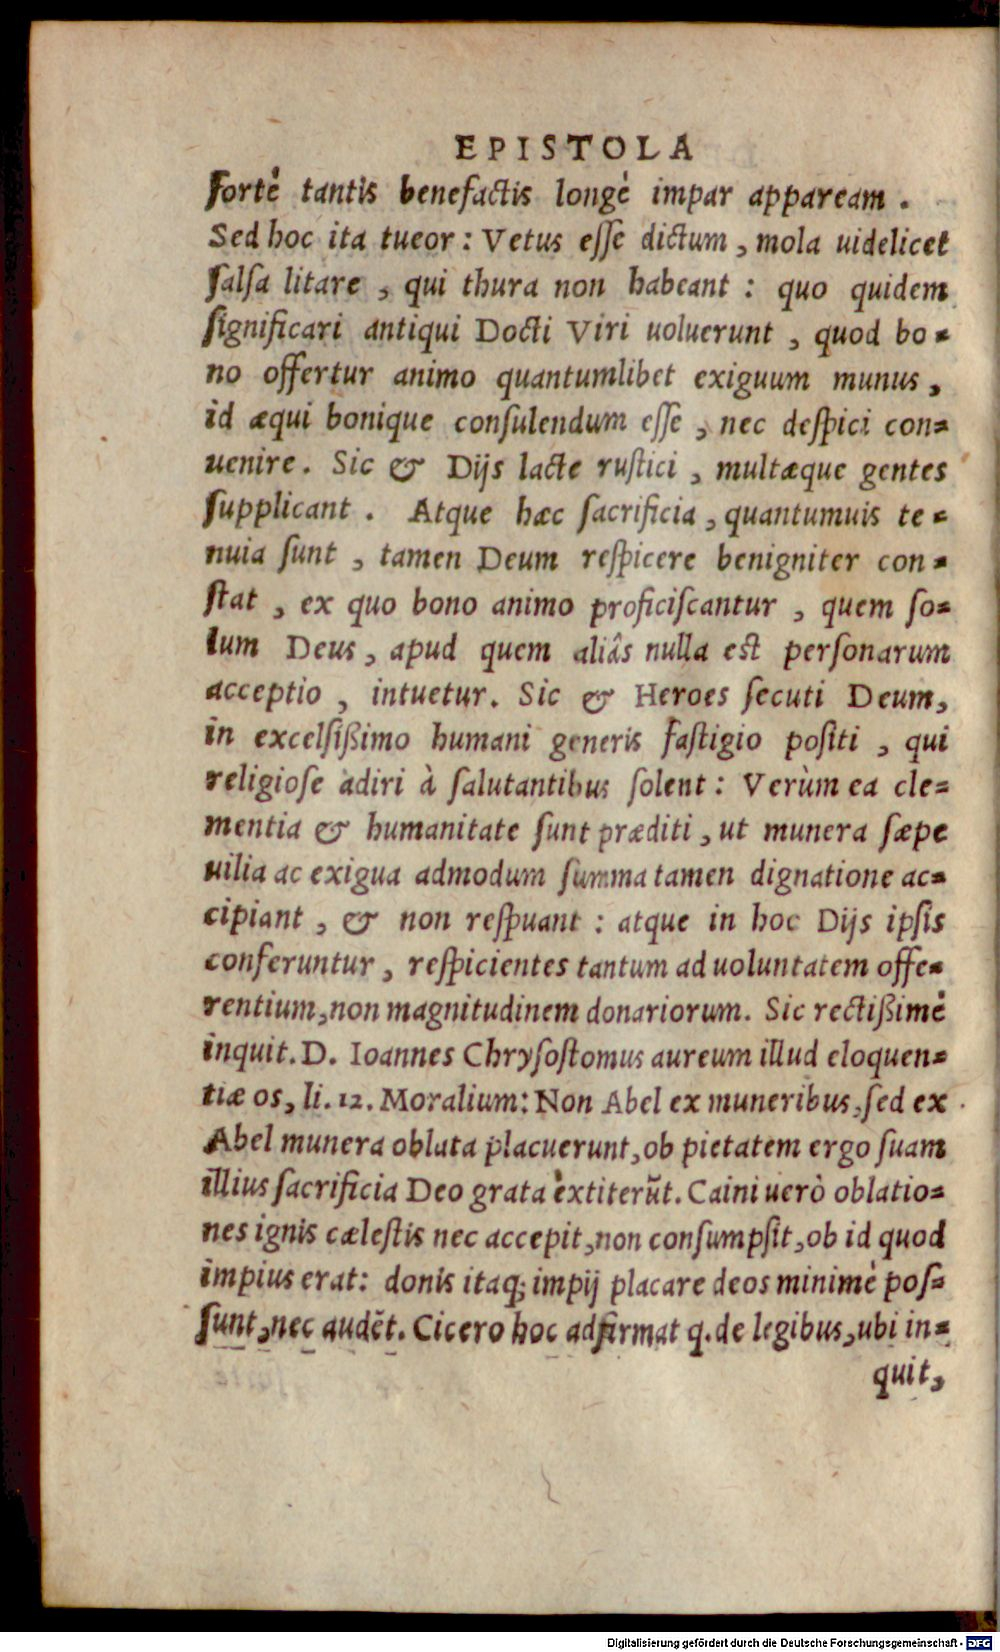 EPISTOLA
fortè tantis benefactis longè impar appaream.
Sed hoc ita tueor: Vetus eſſe dictum, mola uidelicet
ſalſa litare, qui thura non habeant: quo quidem
ſignificari antiqui Docti Viri uoluerunt, quod bo-
no offertur animo quantumlibet exiguum munus,
id æqui bonique conſulendum eſſe, nec deſpici con-
uenire. Sic & Dijs lacte ruſtici, multæque gentes
ſupplicant. Atque hæc ſacrificia, quantumuis te-
nuia ſunt, tamen Deum reſpicere benigniter con-
ſtat, ex quo bono animo proficiſcantur, quem ſo-
lum Deus, apud quem aliâs nulla est perſonarum
acceptio, intuetur. Sic & Heroes ſecuti Deum,
in excelſißimo humani generis faſtigio poſiti, qui
religioſe adiri à ſalutantibus ſolent: Verùm ea cle-
mentia & humanitate ſunt præditi, ut munera ſæpe
uilia ac exigua admodum ſumma tamen dignatione ac-
cipiant, & non reſpuant: atque in hoc Dijs ipſis
conferuntur, reſpicientes tantum ad uoluntatem offe-
rentium, non magnitudinem donariorum. Sic rectißimè
inquit. D. Ioannes Chryſoſtomus aureum illud eloquen-
tiæ os, li. 12. Moralium: Non Abel ex muneribus, ſed ex
Abel munera oblata placuerunt, ob pietatem ergo ſuam
illius ſacrificia Deo grata èxtiterũt. Caini uerò oblatio-
nes ignis cæleſtis nec accepit, non conſumpſit, ob id quod
impius erat: donis itaq; impij placare deos minimè poſ-
ſunt, nec audẽt. Cicero hoc adfirmat q. de legibus, ubi in-
quit,
Digitalisierung gefördert durch die Deutsche Forschungsgemeinschaft - DFG